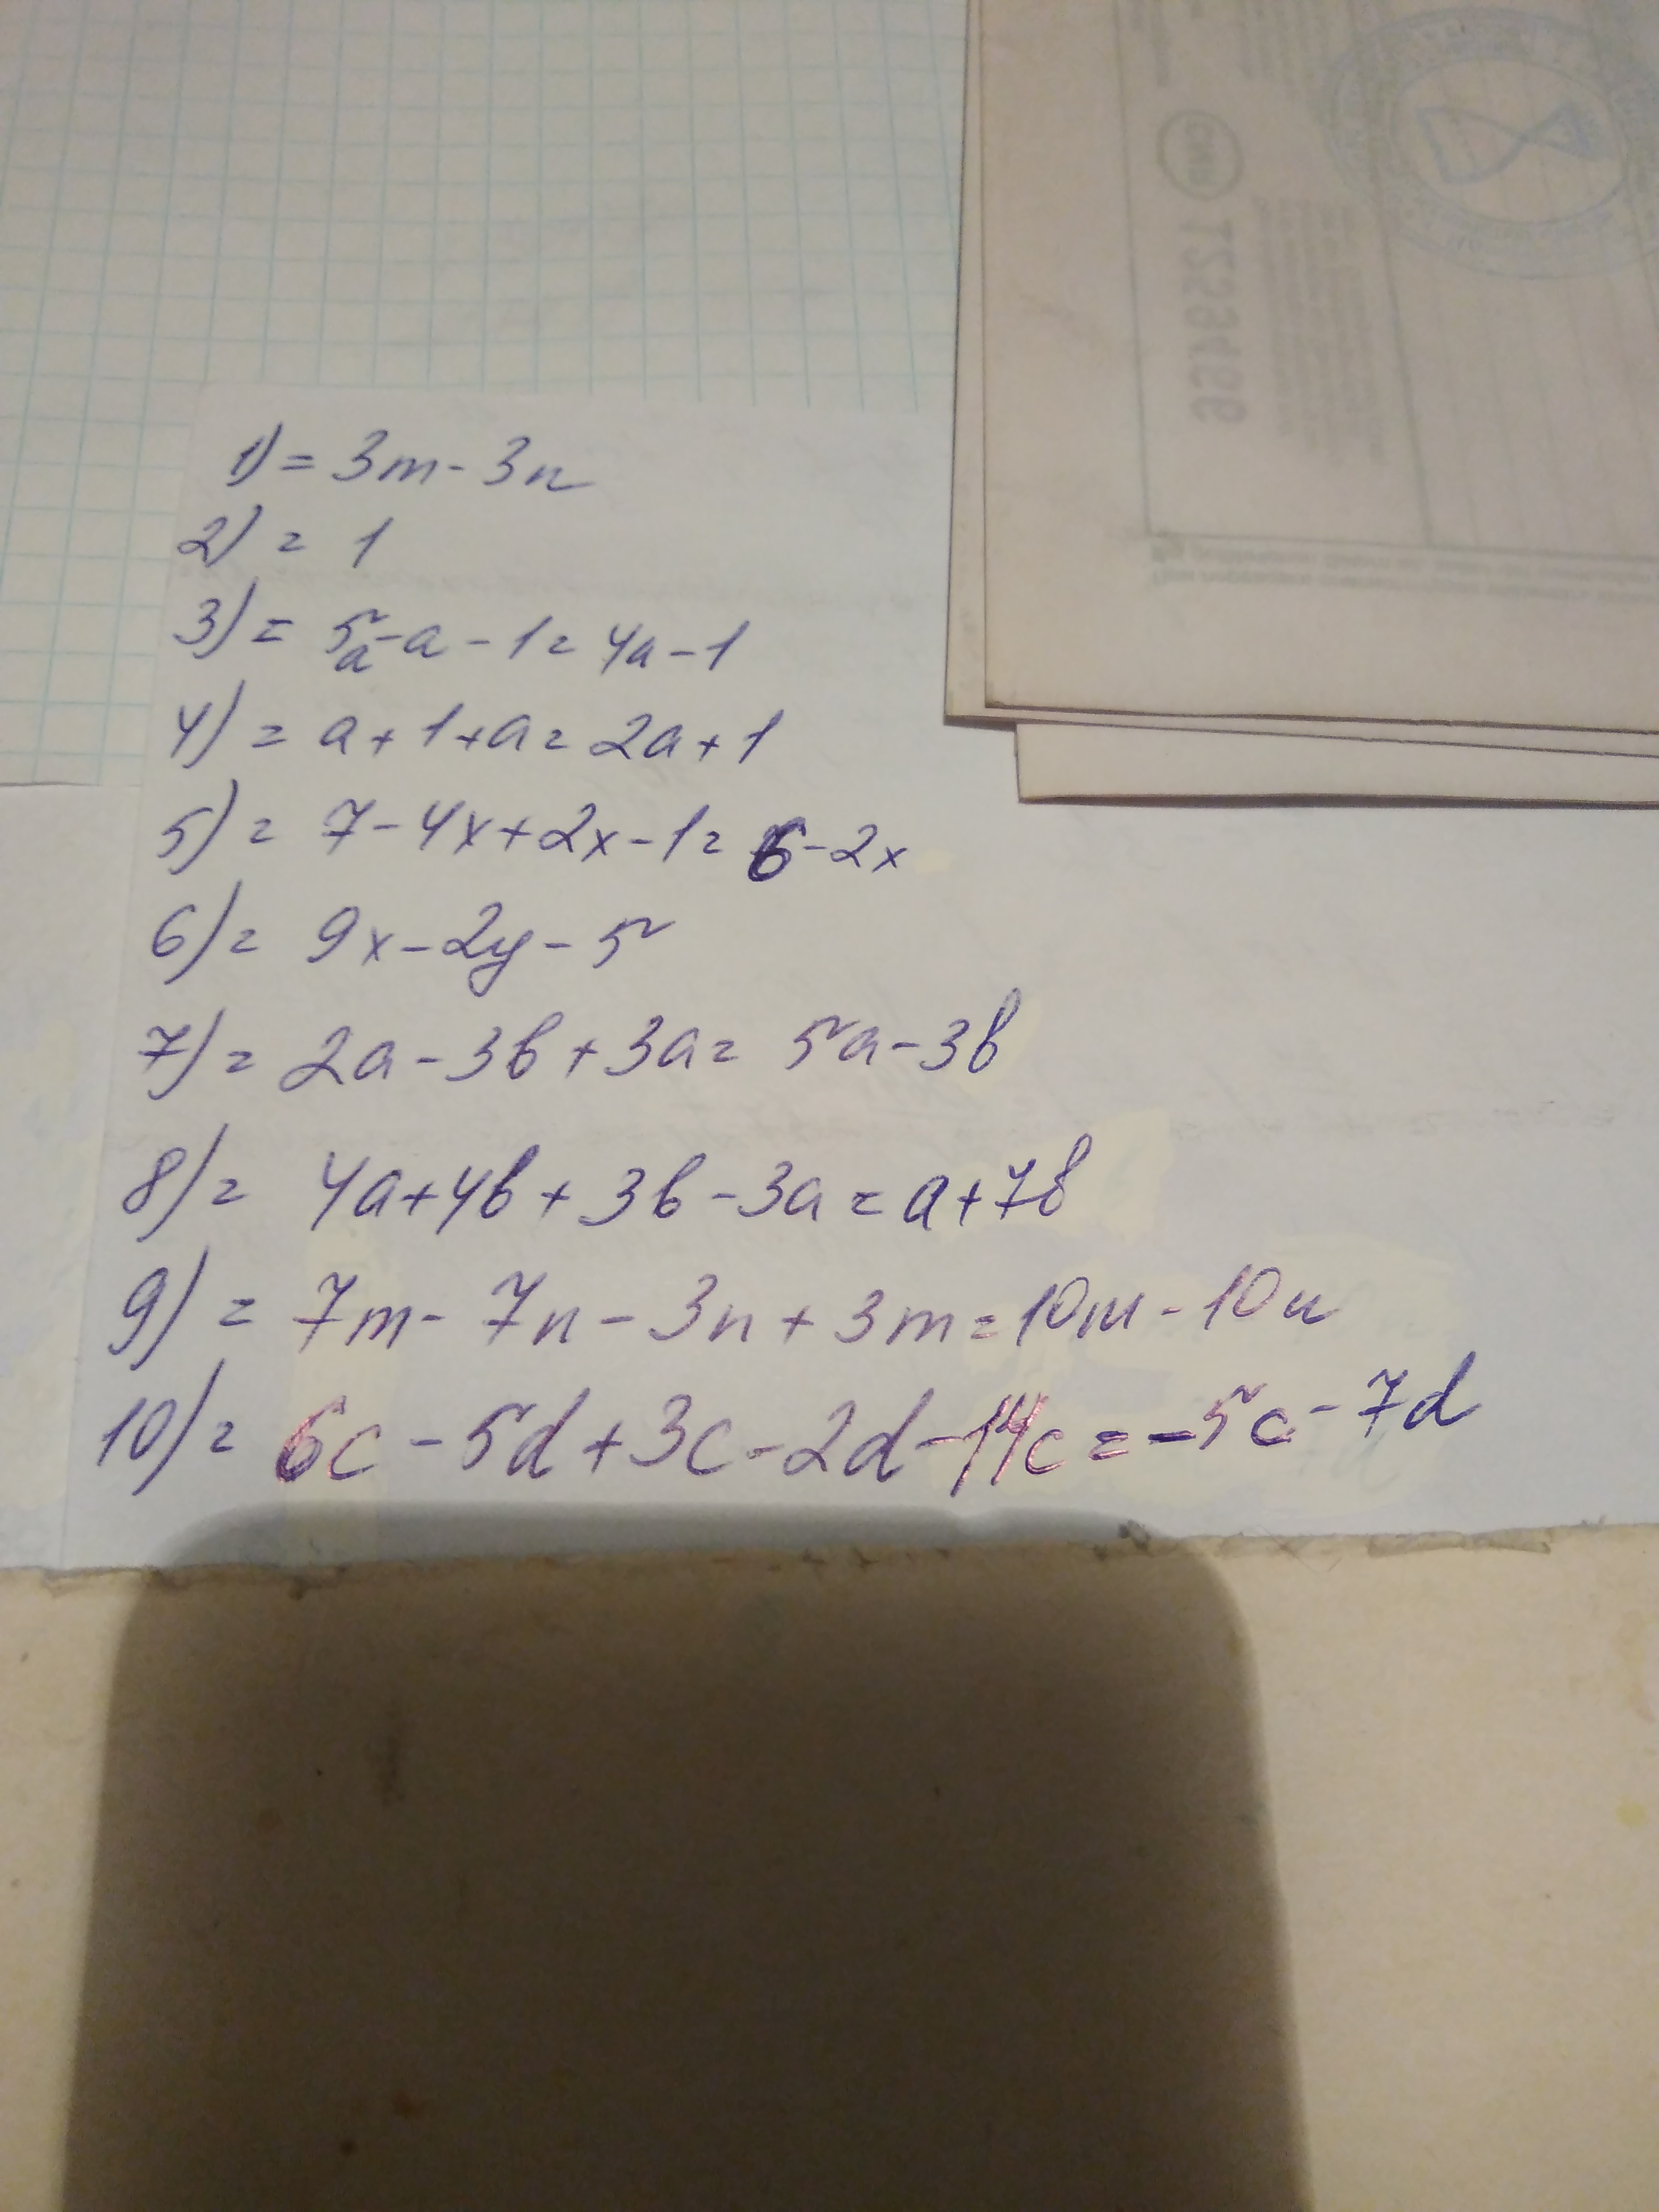 1) = 3m - 3n
2) = 1
3) = 5a - a - 1 = 4a - 1
4) = a + 1 + a = 2a + 1
5) = 7 - 4x + 2x - 1 = 6 - 2x
6) = 9x - 2y - 5
7) = 2a - 3b + 3a = 5a - 3b
8) = 4a + 4b + 3b - 3a = a + 7b
9) = 7m - 7n - 3n + 3m = 10m - 10n
10) = 6c - 5d + 3c - 2d - 14c = -5c - 7d
1259466